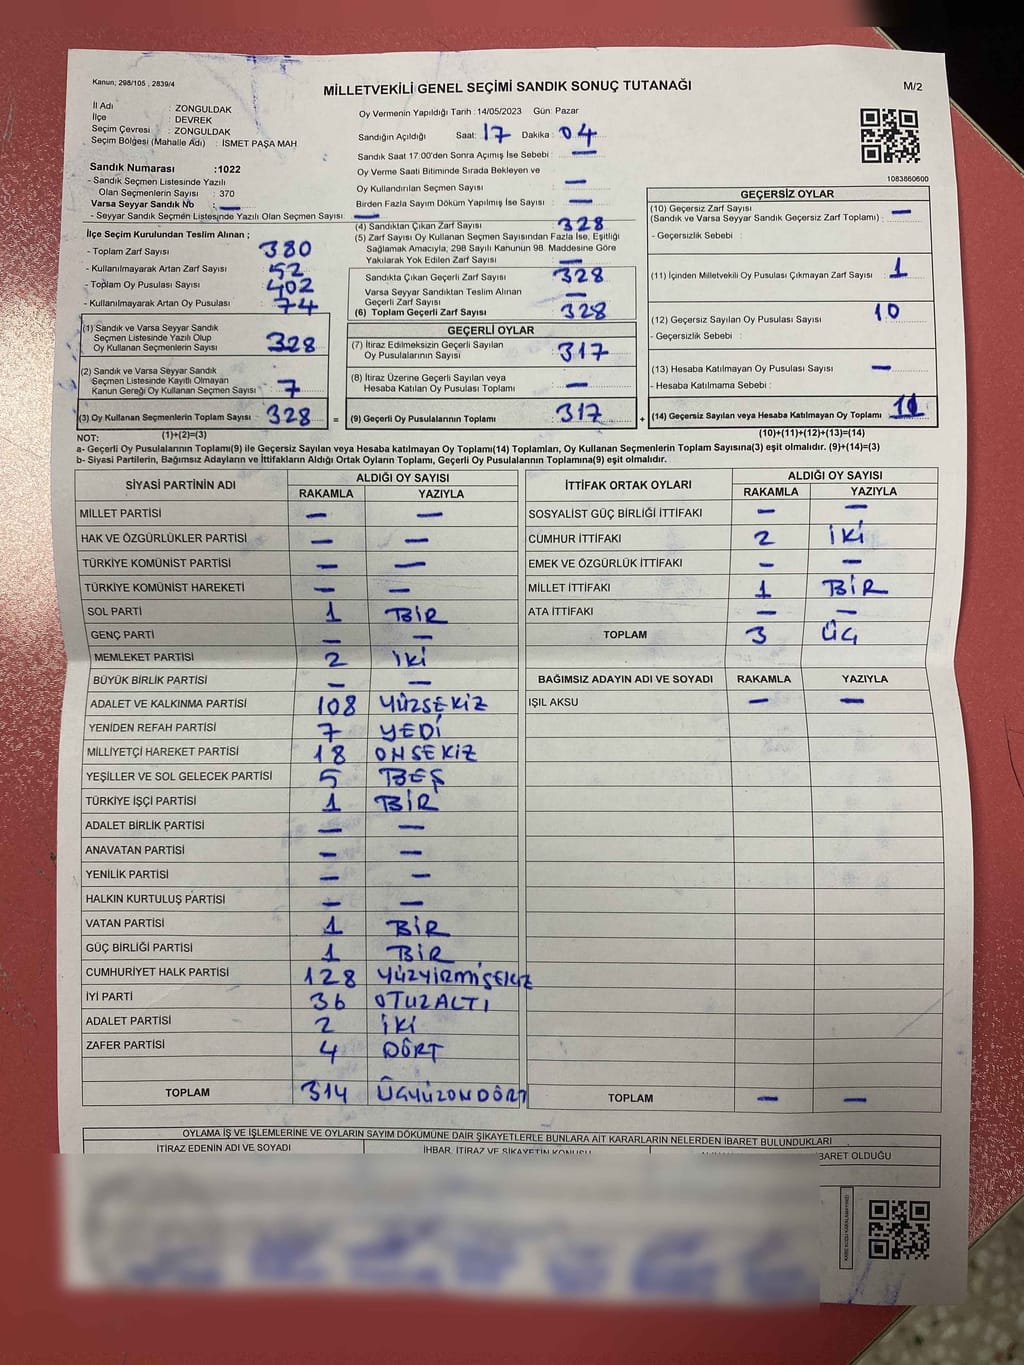 Kanun; 298/105 , 2839/4
MİLLETVEKİLİ GENEL SEÇİMİ SANDIK SONUÇ TUTANAĞI
M/2
İl Adı : ZONGULDAK
İlçe : DEVREK
Seçim Çevresi : ZONGULDAK
Seçim Bölgesi (Mahalle Adı) : İSMET PAŞA MAH
Sandık Numarası :1022
- Sandık Seçmen Listesinde Yazılı
Olan Seçmenlerin Sayısı : 370
Varsa Seyyar Sandık No : —
- Seyyar Sandık Seçmen Listesinde Yazılı Olan Seçmen Sayısı: —
İlçe Seçim Kurulundan Teslim Alınan ;
- Toplam Zarf Sayısı : 380
- Kullanılmayarak Artan Zarf Sayısı : 52
- Toplam Oy Pusulası Sayısı : 402
- Kullanılmayarak Artan Oy Pusulası : 74
(1) Sandık ve Varsa Seyyar Sandık
Seçmen Listesinde Yazılı Olup
Oy Kullanan Seçmenlerin Sayısı : 328
(2) Sandık ve Varsa Seyyar Sandık
Seçmen Listesinde Kayıtlı Olmayan
Kanun Gereği Oy Kullanan Seçmen Sayısı : 7
(3) Oy Kullanan Seçmenlerin Toplam Sayısı : 328 =
Oy Vermenin Yapıldığı Tarih :14/05/2023 Gün: Pazar
Sandığın Açıldığı Saat: 17 Dakika : 04
Sandık Saat 17:00'den Sonra Açımış İse Sebebi : —
Oy Verme Saati Bitiminde Sırada Bekleyen ve
Oy Kullandırılan Seçmen Sayısı : —
Birden Fazla Sayım Döküm Yapılmış İse Sayısı : —
(4) Sandıktan Çıkan Zarf Sayısı : 328
(5) Zarf Sayısı Oy Kullanan Seçmen Sayısından Fazla İse, Eşitliği
Sağlamak Amacıyla; 298 Sayılı Kanunun 98. Maddesine Göre
Yakılarak Yok Edilen Zarf Sayısı : —
Sandıkta Çıkan Geçerli Zarf Sayısı : 328
Varsa Seyyar Sandıktan Teslim Alınan
Geçerli Zarf Sayısı : —
(6) Toplam Geçerli Zarf Sayısı : 328
GEÇERLİ OYLAR
(7) İtiraz Edilmeksizin Geçerli Sayılan
Oy Pusulalarının Sayısı : 317
(8) İtiraz Üzerine Geçerli Sayılan veya
Hesaba Katılan Oy Pusulası Toplamı : —
(9) Geçerli Oy Pusulalarının Toplamı : 317 +
1083660600
GEÇERSİZ OYLAR
(10) Geçersiz Zarf Sayısı
(Sandık ve Varsa Seyyar Sandık Geçersiz Zarf Toplamı) : —
- Geçersizlik Sebebi :
(11) İçinden Milletvekili Oy Pusulası Çıkmayan Zarf Sayısı : 1
(12) Geçersiz Sayılan Oy Pusulası Sayısı : 10
- Geçersizlik Sebebi :
(13) Hesaba Katılmayan Oy Pusulası Sayısı : —
- Hesaba Katılmama Sebebi :
(14) Geçersiz Sayılan veya Hesaba Katılmayan Oy Toplamı : 11
(1)+(2)=(3)
(10)+(11)+(12)+(13)=(14)
NOT:
a- Geçerli Oy Pusulalarının Toplamı(9) ile Geçersiz Sayılan veya Hesaba katılmayan Oy Toplamı(14) Toplamları, Oy Kullanan Seçmenlerin Toplam Sayısına(3) eşit olmalıdır. (9)+(14)=(3)
b- Siyasi Partilerin, Bağımsız Adayların ve İttifakların Aldığı Ortak Oyların Toplamı, Geçerli Oy Pusulalarının Toplamına(9) eşit olmalıdır.
SİYASİ PARTİNİN ADI ALDIĞI OY SAYISI
RAKAMLA YAZIYLA
MİLLET PARTİSİ — —
HAK VE ÖZGÜRLÜKLER PARTİSİ — —
TÜRKİYE KOMÜNİST PARTİSİ — —
TÜRKİYE KOMÜNİST HAREKETİ — —
SOL PARTİ 1 BİR
GENÇ PARTİ — —
MEMLEKET PARTİSİ 2 İKİ
BÜYÜK BİRLİK PARTİSİ — —
ADALET VE KALKINMA PARTİSİ 108 YÜZSEKİZ
YENİDEN REFAH PARTİSİ 7 YEDİ
MİLLİYETÇİ HAREKET PARTİSİ 18 ONSEKİZ
YEŞİLLER VE SOL GELECEK PARTİSİ 5 BEŞ
TÜRKİYE İŞÇİ PARTİSİ 1 BİR
ADALET BİRLİK PARTİSİ — —
ANAVATAN PARTİSİ — —
YENİLİK PARTİSİ — —
HALKIN KURTULUŞ PARTİSİ — —
VATAN PARTİSİ 1 BİR
GÜÇ BİRLİĞİ PARTİSİ 1 BİR
CUMHURİYET HALK PARTİSİ 128 YÜZYİRMİSEKİZ
İYİ PARTİ 36 OTUZALTI
ADALET PARTİSİ 2 İKİ
ZAFER PARTİSİ 4 DÖRT
TOPLAM 314 ÜÇYÜZONDÖRT
İTTİFAK ORTAK OYLARI ALDIĞI OY SAYISI
RAKAMLA YAZIYLA
SOSYALİST GÜÇ BİRLİĞİ İTTİFAKI — —
CUMHUR İTTİFAKI 2 İKİ
EMEK VE ÖZGÜRLÜK İTTİFAKI — —
MİLLET İTTİFAKI 1 BİR
ATA İTTİFAKI — —
TOPLAM 3 ÜÇ
BAĞIMSIZ ADAYIN ADI VE SOYADI RAKAMLA YAZIYLA
IŞIL AKSU — —
TOPLAM — —
OYLAMA İŞ VE İŞLEMLERİNE VE OYLARIN SAYIM DÖKÜMÜNE DAİR ŞİKAYETLERLE BUNLARA AİT KARARLARIN NELERDEN İBARET BULUNDUKLARI
İTİRAZ EDENİN ADI VE SOYADI İHBAR, İTİRAZ VE ŞİKAYETİN KONUSU İBARET OLDUĞU